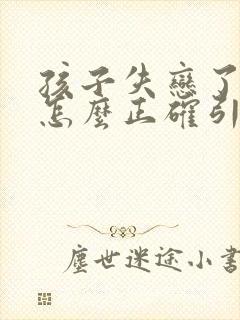 孩子失戀了
怎麼正確引
塵世迷途小書